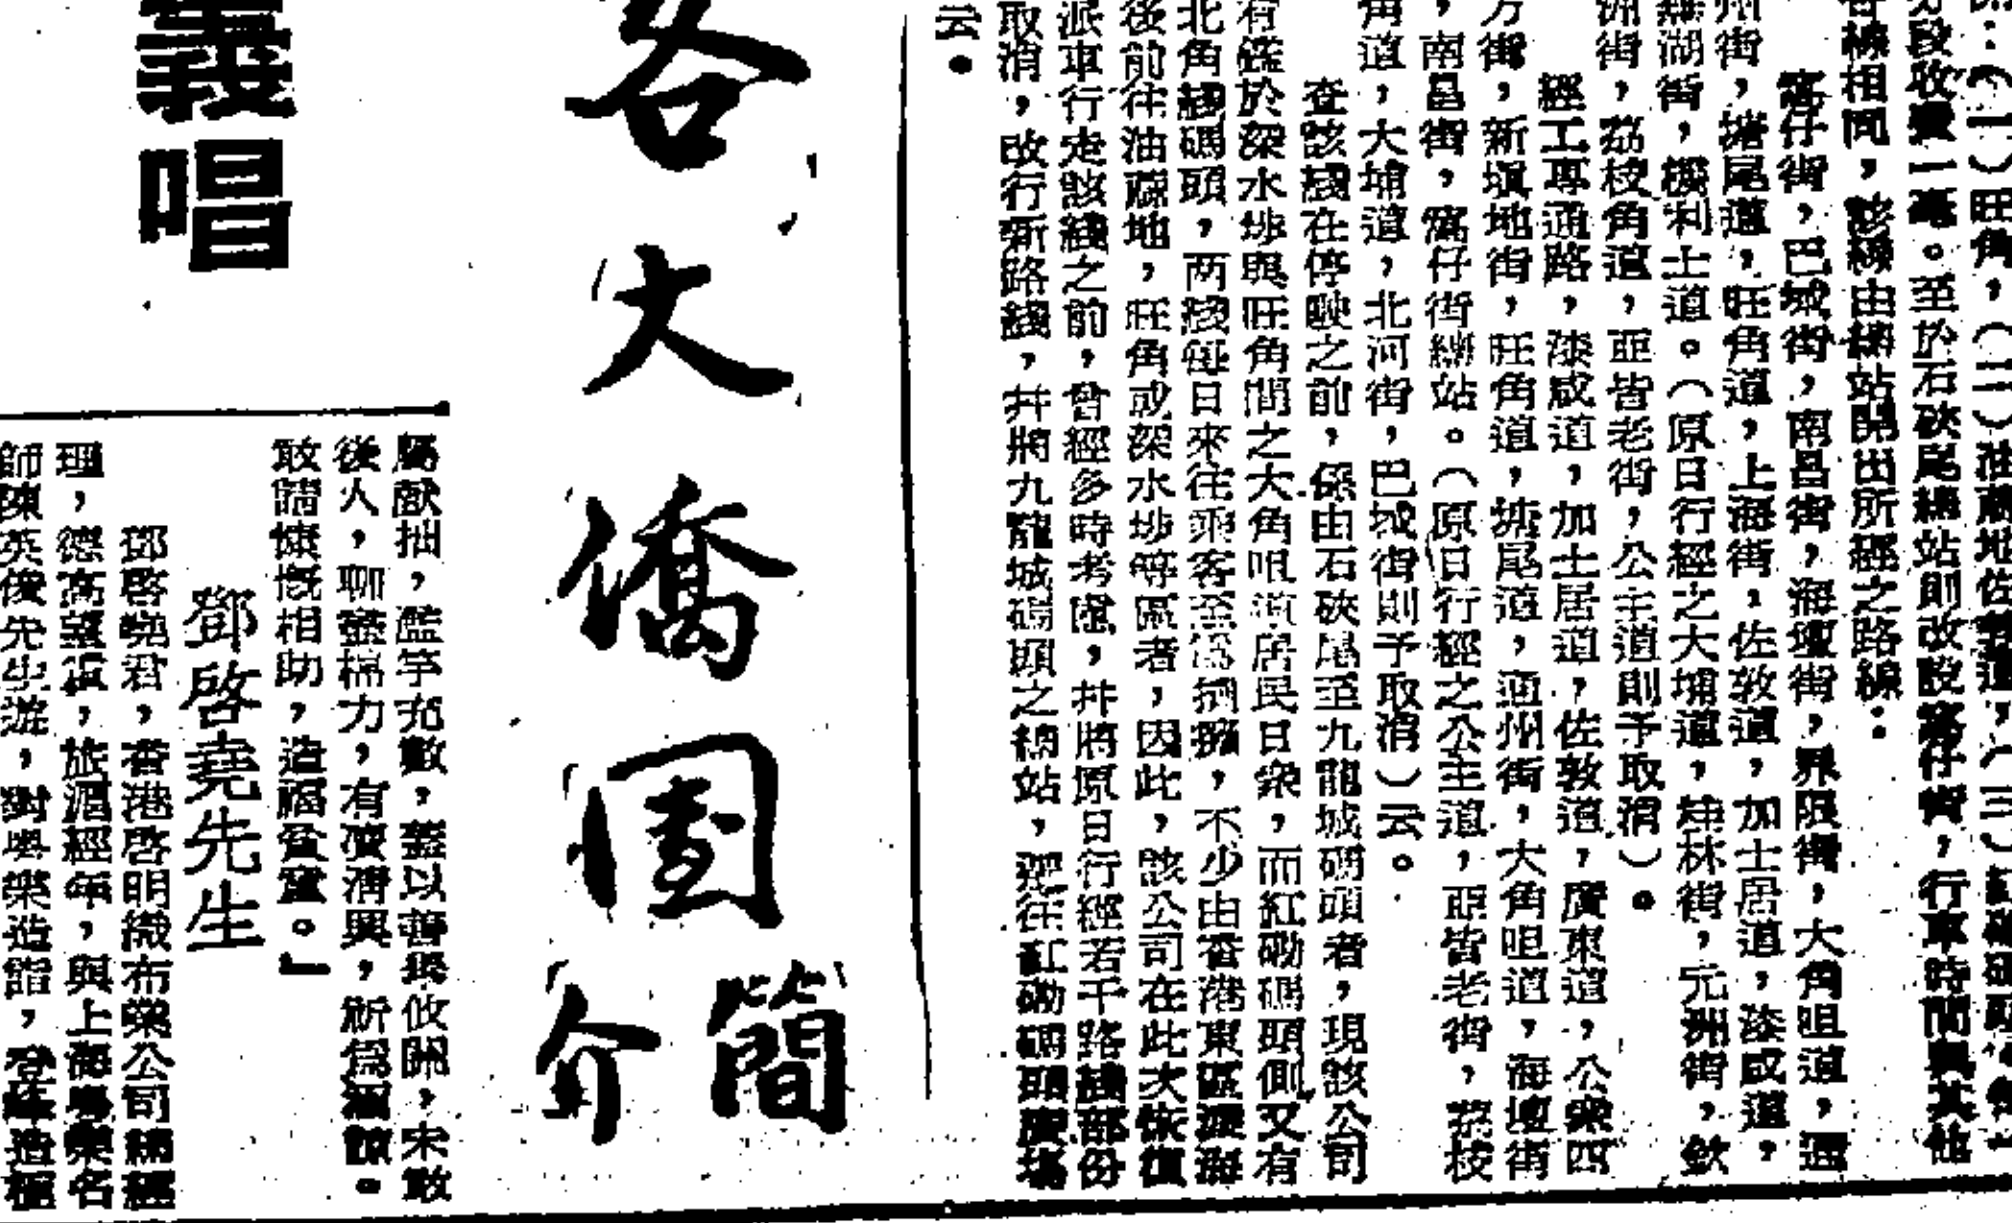 旺角,(二)油蔴地佐敦道,(三)紅磡碼頭
分段收費一毫。至於石硤尾總站則改設窩仔街,行車時間與其他
各線相同,該線由總站開出所經之路線:
窩仔街,巴域街,南昌街,海壇街,界限街,大角咀道,通
州街,塘尾道,旺角道,上海街,佐敦道,加士居道,漆咸道,
蕪湖街,機利士道。(原日行經之大埔道,桂林街,元洲街,欽
洲街,荔枝角道,亞皆老街,公主道則予取消)。
經工專通路,漆咸道,加士居道,佐敦道,廣東道,公衆四
方街,新塡地街,旺角道,塘尾道,通州街,大角咀道,海壇街
,南昌街,窩仔街總站。(原日行經之公主道,亞皆老街,荔枝
角道,大埔道,北河街,巴域街則予取消)云。
查該綫在停駛之前,係由石硤尾至九龍城碼頭者,現該公司
有鑑於深水埗與旺角間之大角咀道居民日衆,而紅磡碼頭側又有
北角綫碼頭,两綫每日來往乘客至爲擠擁,不少由香港東區渡海
後前往油蔴地,旺角或深水埗等區者,因此,該公司在此次恢復
派車行走該綫之前,曾經多時考慮,幷將原日行經若干路綫部份
取消,改行新路綫,幷將九龍城碼頭之總站,遷往紅磡碼頭廣塲
云。
各大僑團簡介
義唱
屬献抽,濫竽充數,蓋以善與攸關,未敢
後人,聊盡棉力,有瀆淸興,祈爲涵諒。
敢請慷慨相助,造福貧童。』
鄧啓堯先生
鄧啓堯君,香港啓明織布業公司總經
理,德高望重,旅滬經年,與上海粤樂名
師陳英俊先生遊,對粤樂造詣,登峰造極